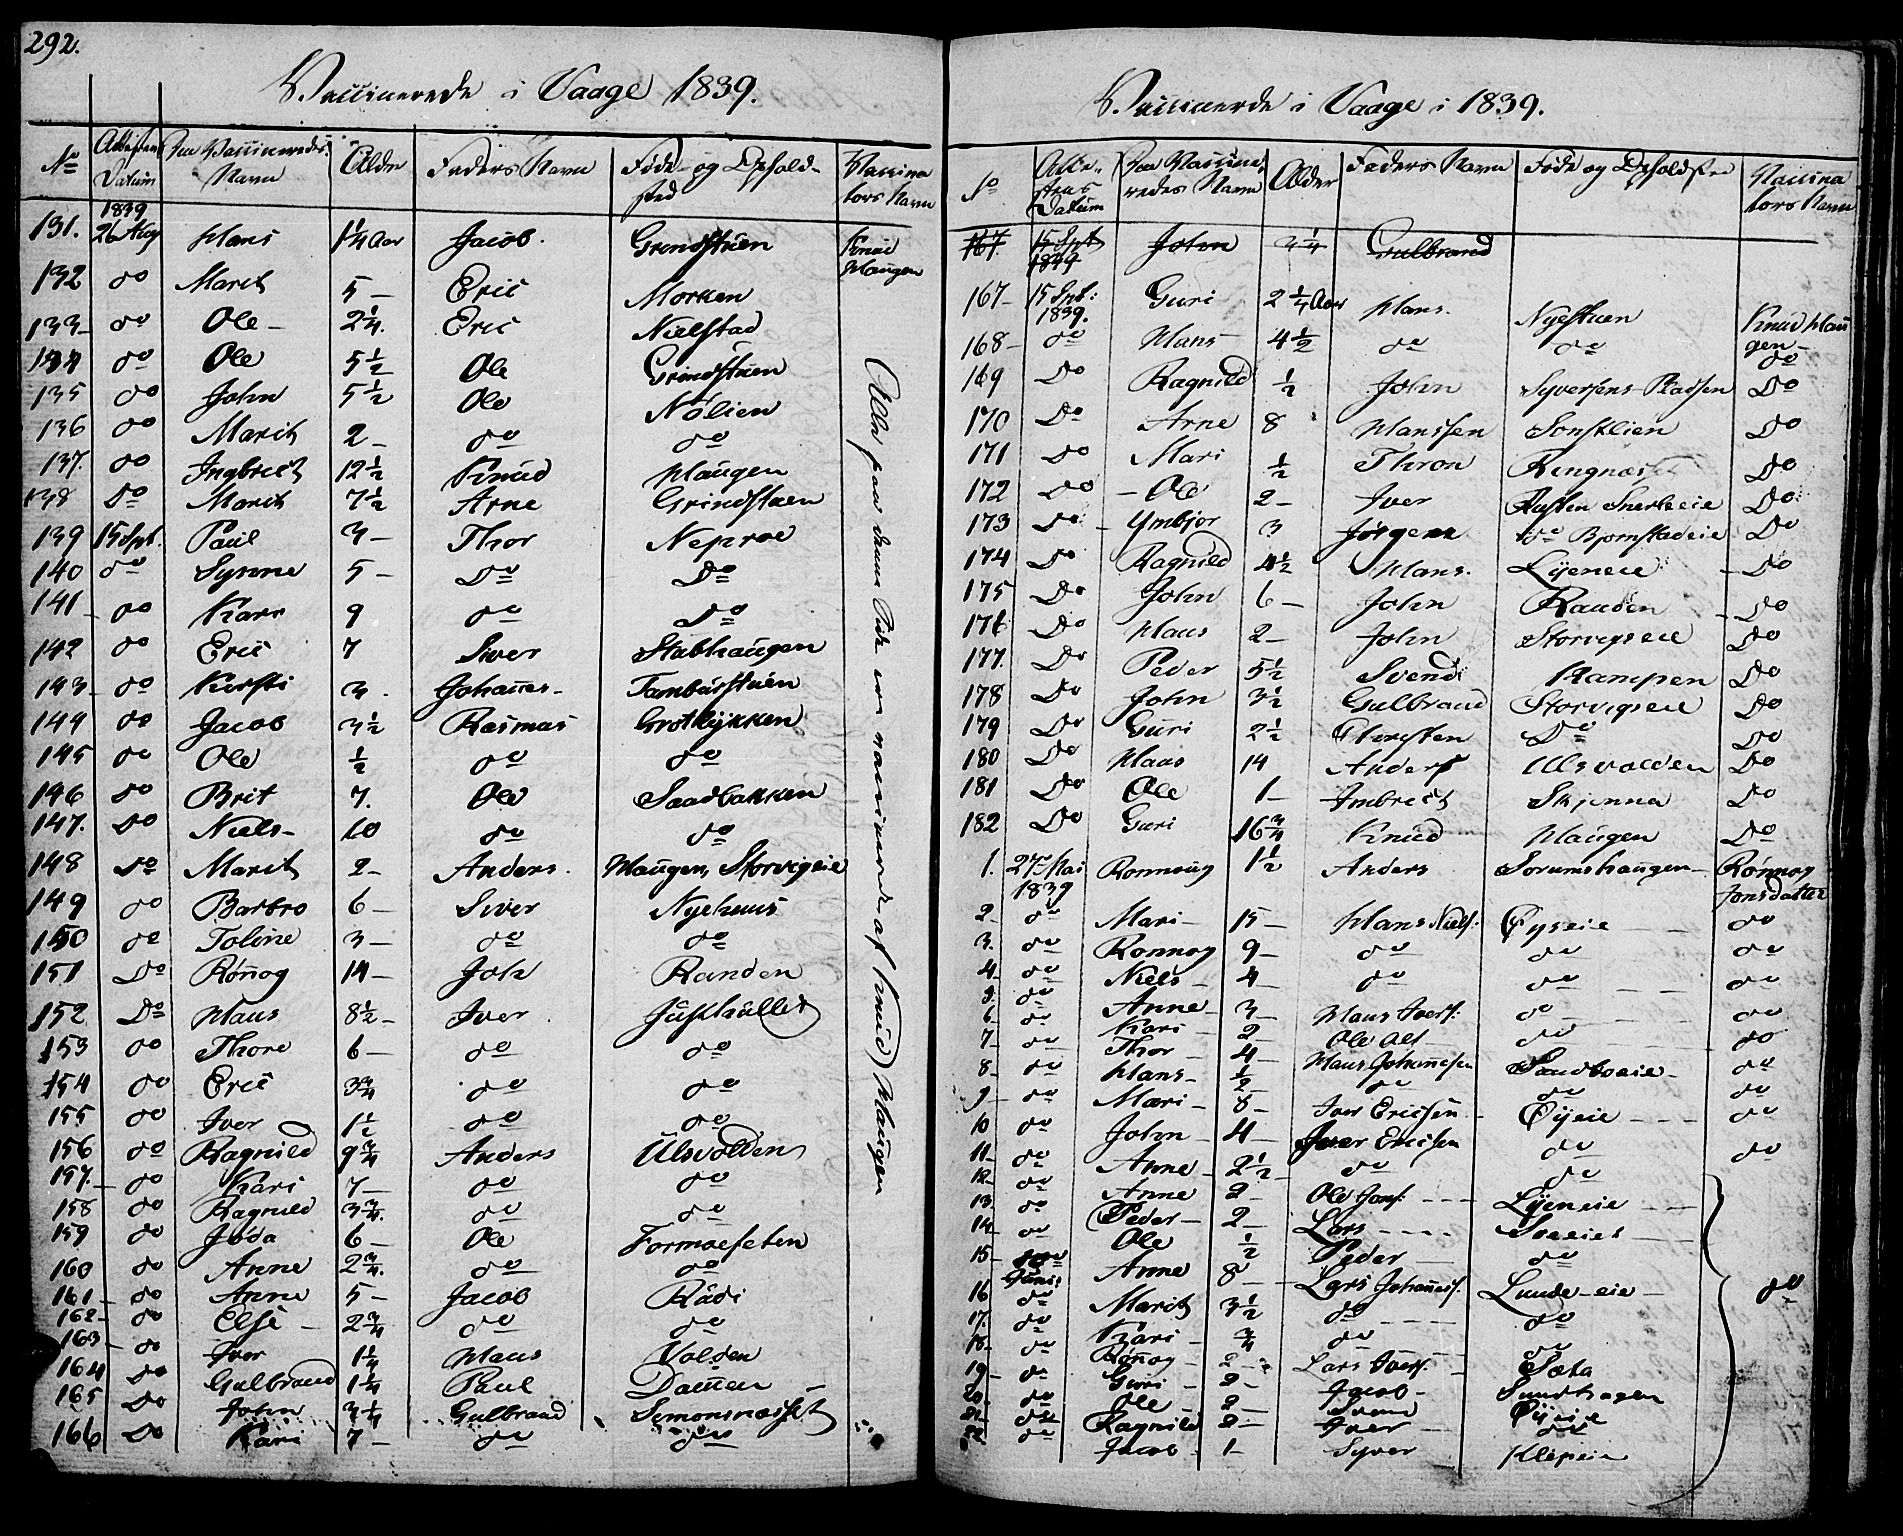 292.
Vaccinerede i Vaage 1839.
No Attesten Datum Den Vaccineredes Navn Alder Faders Navn Føde- og Opholdsted Vaccinators Navn
131. 1839 26 Aug Hans 1 1/4 Aar Jacob. Grindstuen Knud Haugen
132 do Marit 5 - Eric Morken
133 - do Ole - 2 1/4. Eric Nielstad
134 do Ole 5 1/2 Ole Grindstuen
135 do John 5 1/2 Ole Nölien
136 do Marit 2 - do do
137. do Ingbrect 12 1/2 Knud Haugen
138 Do Marit 7 1/2 Arne Grindstuen
139 15 Spt. Paul 3 - Thor Neproe
140 do Synne 5 - Do Do
141 - do Kari 9 do Do
142 do Eric 7 Siver Stabhaugen
143 - do Kirsti 3. Johannes - Tamburstuen
144 do Jacob 3 1/2 Rasmus
145 do Ole 1/2 do do
146 do Brit 7. Ole Saadbakken
147. Do Niels - 10 do do
148 Do Marit 2 - Anders. Haugen, Storvigeie
149 do Barbro 6 - Siver Nyehuus
150 do Toline 3 - do do
151 Do Rönog 14 - Joh Randen
152 Do Hans 8 1/2 - Iver
153 do Thore 6 - do do
154 do Eric 3 3/4 do do
155 do Iver 1 1/2 do do
156 do Ragnild 9 3/4 Anders Ulsvolden
157. - do Kari 7 - do do
158 do Ragnild 3 3/4. do do
159 do Joda 6 - Ole Formoeseten
160 do Anne 2 3/4. do do
161 - do Anne 5 - Jacob Rádi
162 - do Else - 2 3/4 do do
163 - do Iver 1 1/4 Hans Volden
164 Do Gulbrand 1 1/4 Paul
165 Do John 3 1/4 Gulbrand Simonsnæsset
166 Do Kari 7 - do do
Alle paa denne Side ere vaccinerede af Knud Haugen
Vaccinerde i Vaage i 1839.
No Attestens Datum Den Vaccineredes Navn Alder Faders Navn Føde og Opholdsted Vaccinators Navn
167. 15 Spt 1839 John 3 1/4 Gulbrand
167 - 15 Spt: 1839. Guri 2 1/4 Aar Hans. Nyestuen Knud Haugen -
168 - do Hans 4 1/2 do do do
169 Do Ragnild 1/2 John Syversens Pladsen Do
170 Do Arne 8 Hanssen Sonstlien Do
171 Do Mari 1/2 Thron Ringnæsset Do
172 Do - Ole 2 - Iver Do
173 Do - Ymbjor 3 Jørgen do Bjornstadeie Do
174 Do Ragnild 4 1/2 Hans. - Do
175 Do John 6 - John Randen - Do
176 Do Hans 2 - John Storvigseie Do
177. Do Peder 5 1/2 Svend Kampen Do
178 Do John 3 1/2 Gulbrand Storvigseie Do
179 Do Guri 2 1/2 Thorsten Do Do
180 Do Hans 14 Anders Ulsvolden Do
181 Do Ole 1 - Imbrect Skjenna Do
182 Do Guri 16 3/4 Knud Haugen Do
1. 27 Mai 1839 Ronnoug 1 1/2 Anders Sorumshaugen - Rønnog Jonsdatter
2 - do Mari - 15 - Hans Niels: do
3. do Ronnog 9 - do do do
4 - do Niels - 4 - do do do
5. do Anne - 3 - Hans Ivers: do do
6 - do Kari - 2 - Ole do do
7 - do Thor - 4 - Hans Johannesen Sandboeie - do
8 - do Hans - 1/2 - do do do
9 - do Mari - 8 - Iver Ericsen - Öyeie do
10 do John - 4 - Iver Ericsen do do
11. do Anne - 2 1/2 - do do
12 - do Anne 2 - Ole Jons: Lyeneie
13 do Peder - 2 - Lars
14 do Ole 1/2 Peder do
15 - Juni: Anne 8 - Lars Johanness: Lunde-eie -
16 do Marit 3 1/2 do do do
17. do Kari - 3/4 do do
18 - do Rönog - 2 - Lars Ivers: Sata
19 - do Guri - 2 - Jacob - Sundhagen
20 do Ole 2 - Svend Öyeie
21 do Ragnild 2 - Iver do
22 do Jacob - 1 - Syver